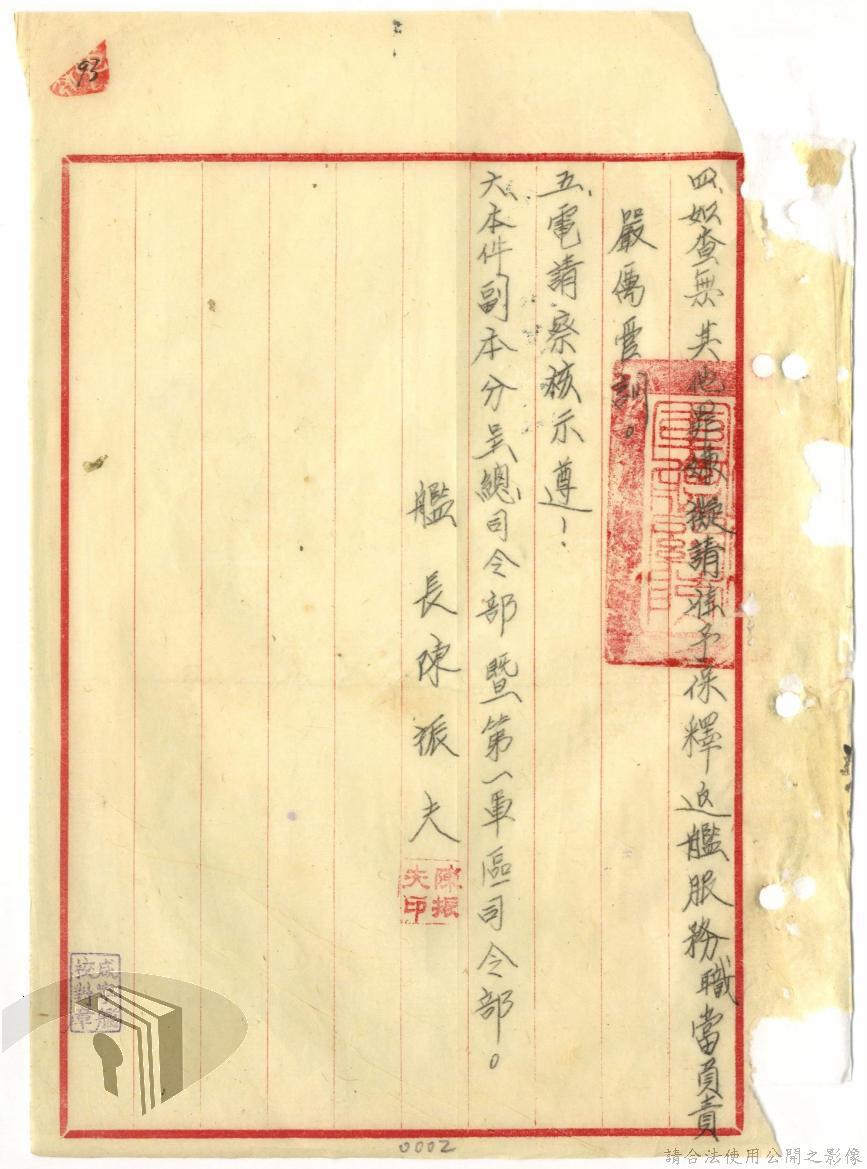 93
四、如查無其他罪嫌擬請准予保釋返艦服務職當員責
嚴傌管訓。
五、電請察核示遵!
六、本件副本分呈總司令部暨第一軍區司令部。
艦長陳振夫
陳振
夫印
0002
請合法使用公開之影像